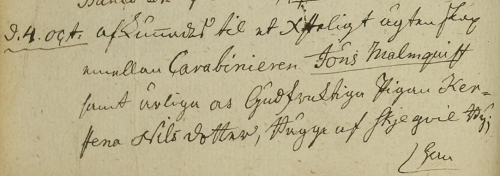 d. 4. oct. afkunnades til et Xsteligt ägtenskap
emellan Carabinieren Jöns Malmquist
samt ärliga och Gudfruktiga Pigan Ker-
stena Nils dotter, bägge af Skjegrie By;